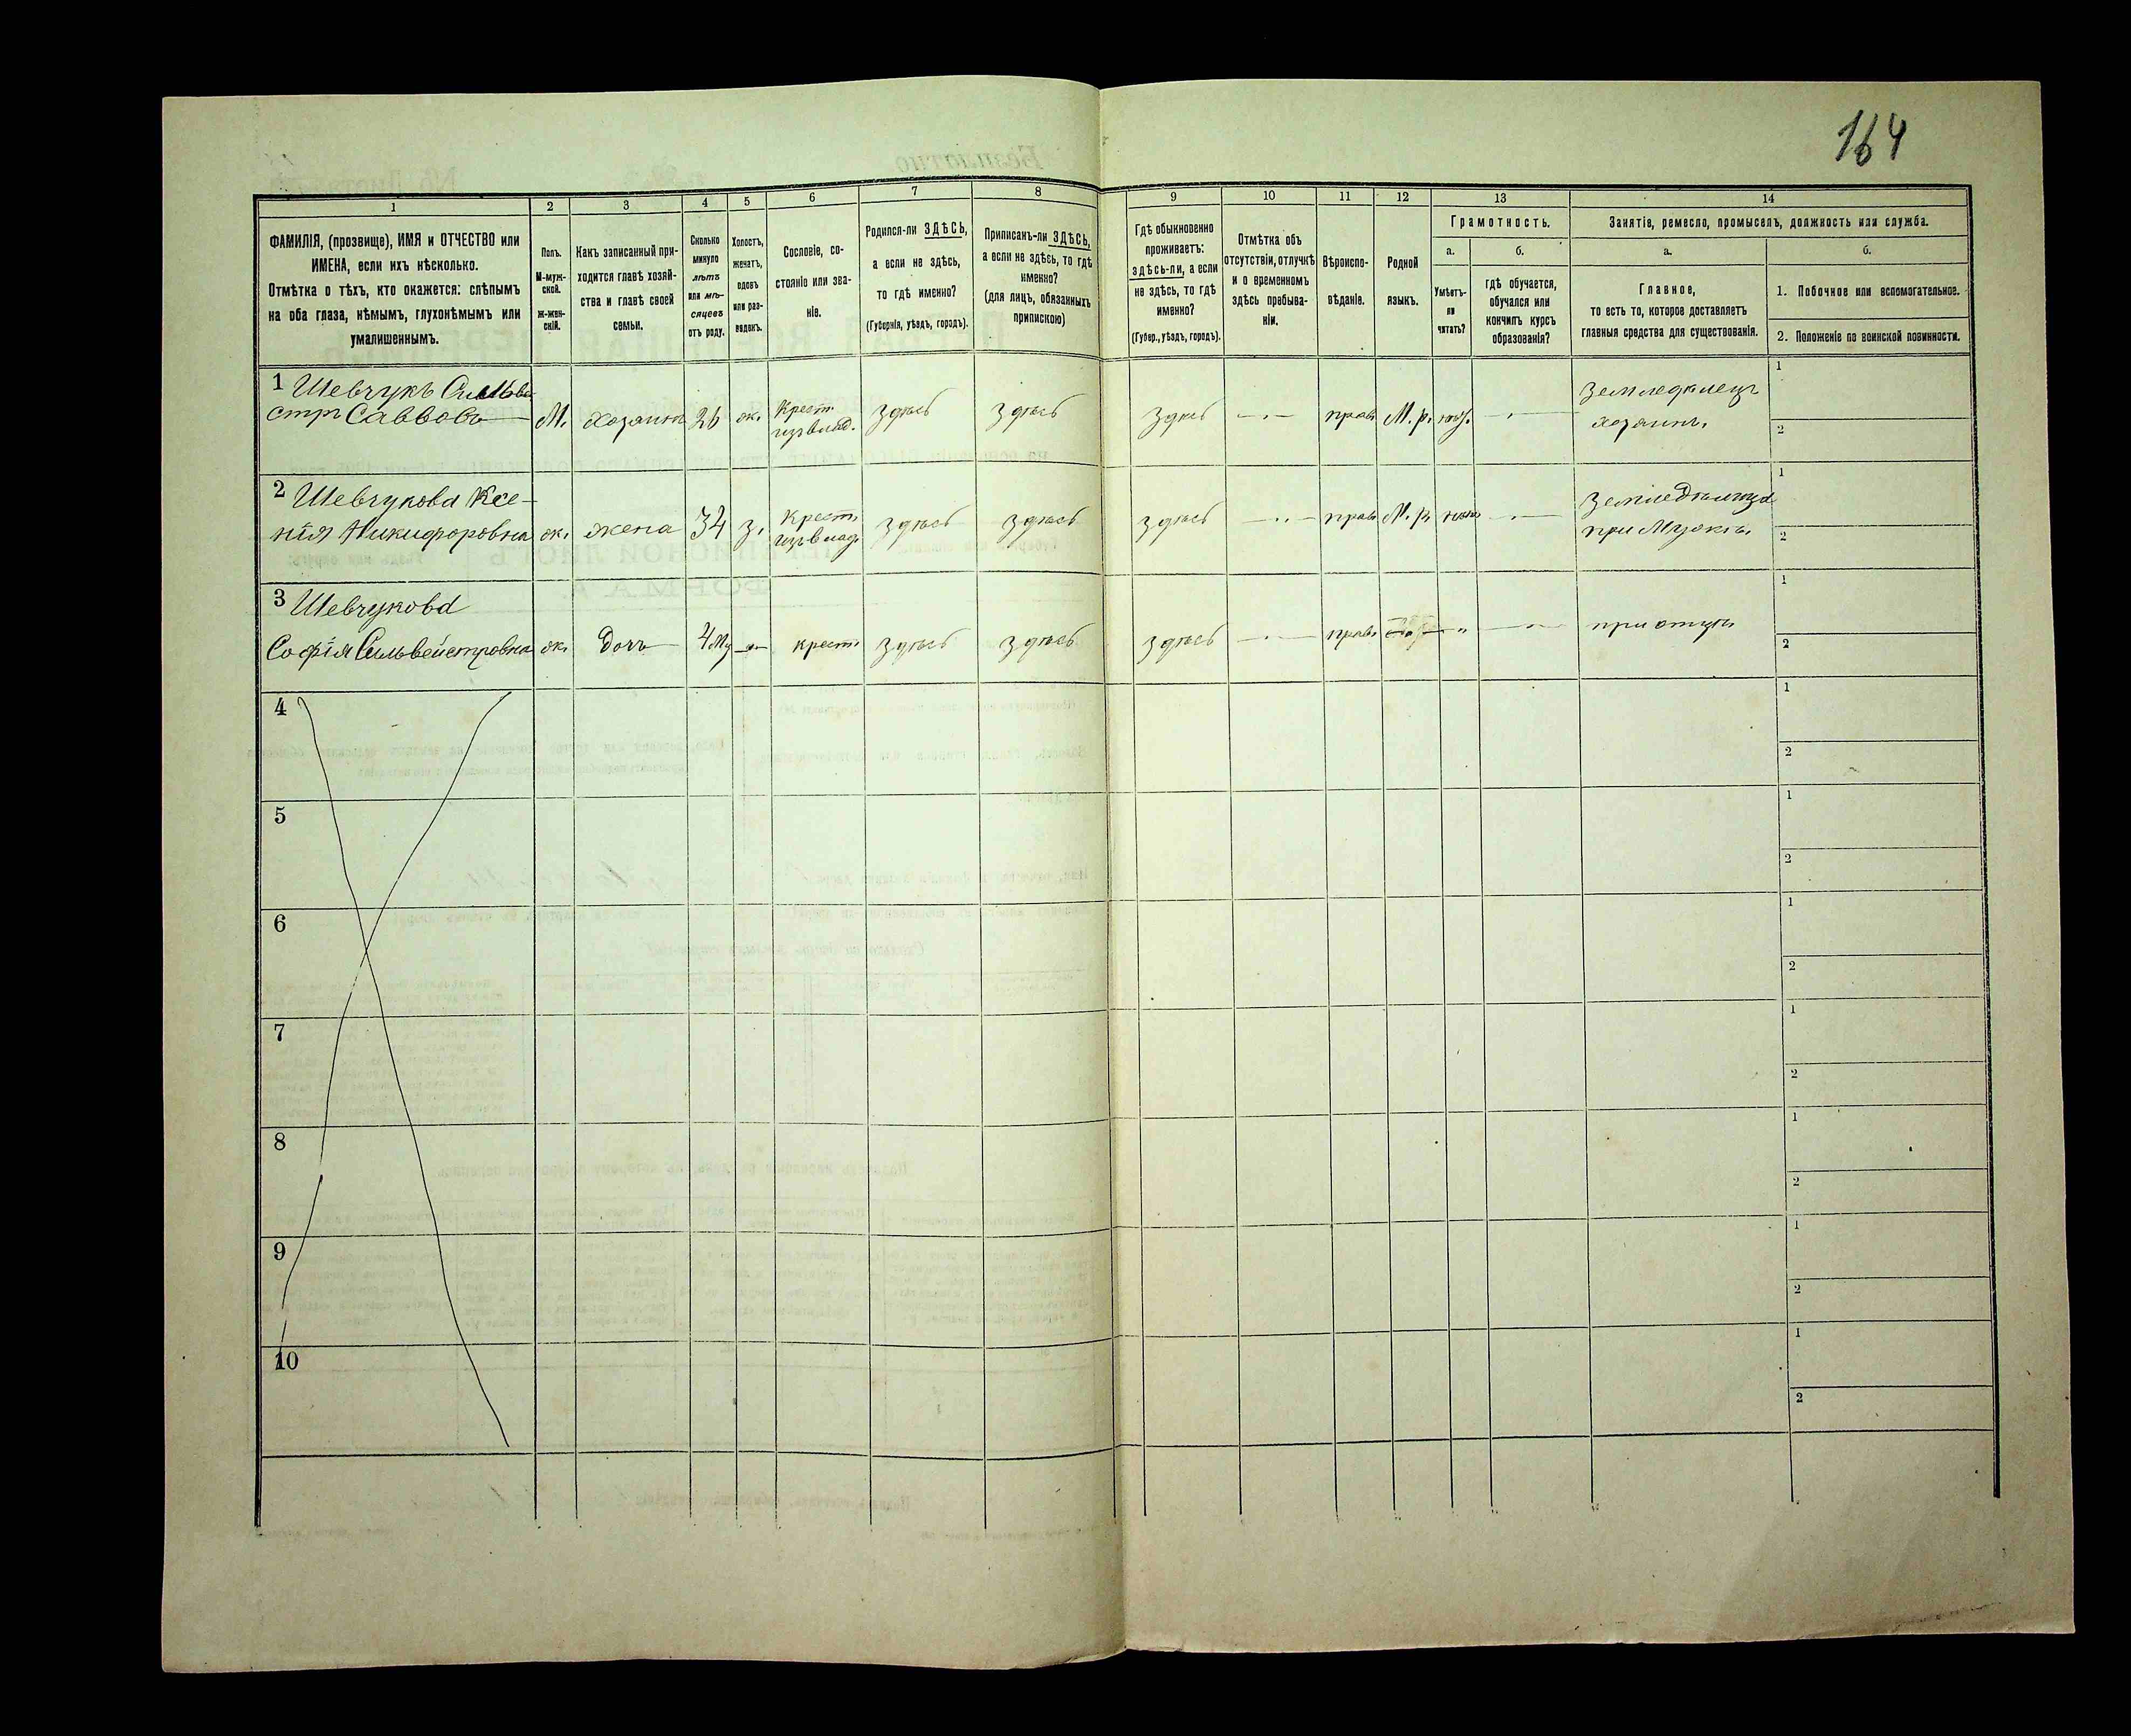 164
1
2
3
4
5
6
7
8
9
10
11
12
13
14
ФАМИЛІЯ, (прозвище), ИМЯ и ОТЧЕСТВО или
ИМЕНА, если ихъ нѣсколько.
Отмѣтка о тѣхъ, кто окажется: слѣпымъ
на оба глаза, нѣмымъ, глухонѣмымъ или
умалишеннымъ.
Полъ.
М-муж-
ской.
Ж-жен-
скій.
Какъ записанный при-
ходится главѣ хозяй-
ства и главѣ своей
семьи.
Сколько
минуло
лѣтъ
или мѣ-
сяцевъ
отъ роду.
Холостъ,
женатъ,
вдовъ
или раз-
веденъ.
Сословіе, со-
стояніе или зва-
ніе.
Родился-ли ЗДѢСЬ,
а если не здѣсь,
то гдѣ именно?
(Губернія, уѣздъ, городъ).
Приписанъ-ли ЗДѢСЬ,
а если не здѣсь, то гдѣ
именно?
(для лицъ, обязанныхъ
припискою)
Гдѣ обыкновенно
проживаетъ:
здѣсь-ли, а если
не здѣсь, то гдѣ
именно?
(Губер., уѣздъ, городъ).
Отмѣтка объ
отсутствіи, отлучкѣ
и о временномъ
здѣсь пребыва-
ніи.
Вѣроиспо-
вѣданіе.
Родной
языкъ.
Грамотность.
а.
Умѣетъ-
ли
читать?
б.
гдѣ обучается,
обучался или
кончилъ курсъ
образованія?
Занятіе, ремесло, промыселъ, должность или служба.
а.
Главное,
то есть то, которое доставляетъ
главныя средства для существованія.
б.
1. Побочное или вспомогательное.
2. Положеніе по воинской повинности.
1 Шевчукъ Сильве
стръ Саввовъ
М. Хозяинъ 26 ж. Крест. изъ влад. здѣсь здѣсь здѣсь — прав. М. р. —
Земледѣлецъ
хозяинъ.
1
2
2 Шевчукова Ксе-
нія Никифоровна
ж. жена 34 з. Крест. изъ влад. здѣсь здѣсь здѣсь — прав. М. р. —
Земледѣлица
при Мужѣ.
1
2
3 Шевчукова
Софія Сильвейстровна
ж. дочь 4 — крест. здѣсь здѣсь здѣсь — прав. —
при отцѣ
1
2
4
1
2
5
1
2
6
1
2
7
1
2
8
1
2
9
1
2
10
1
2